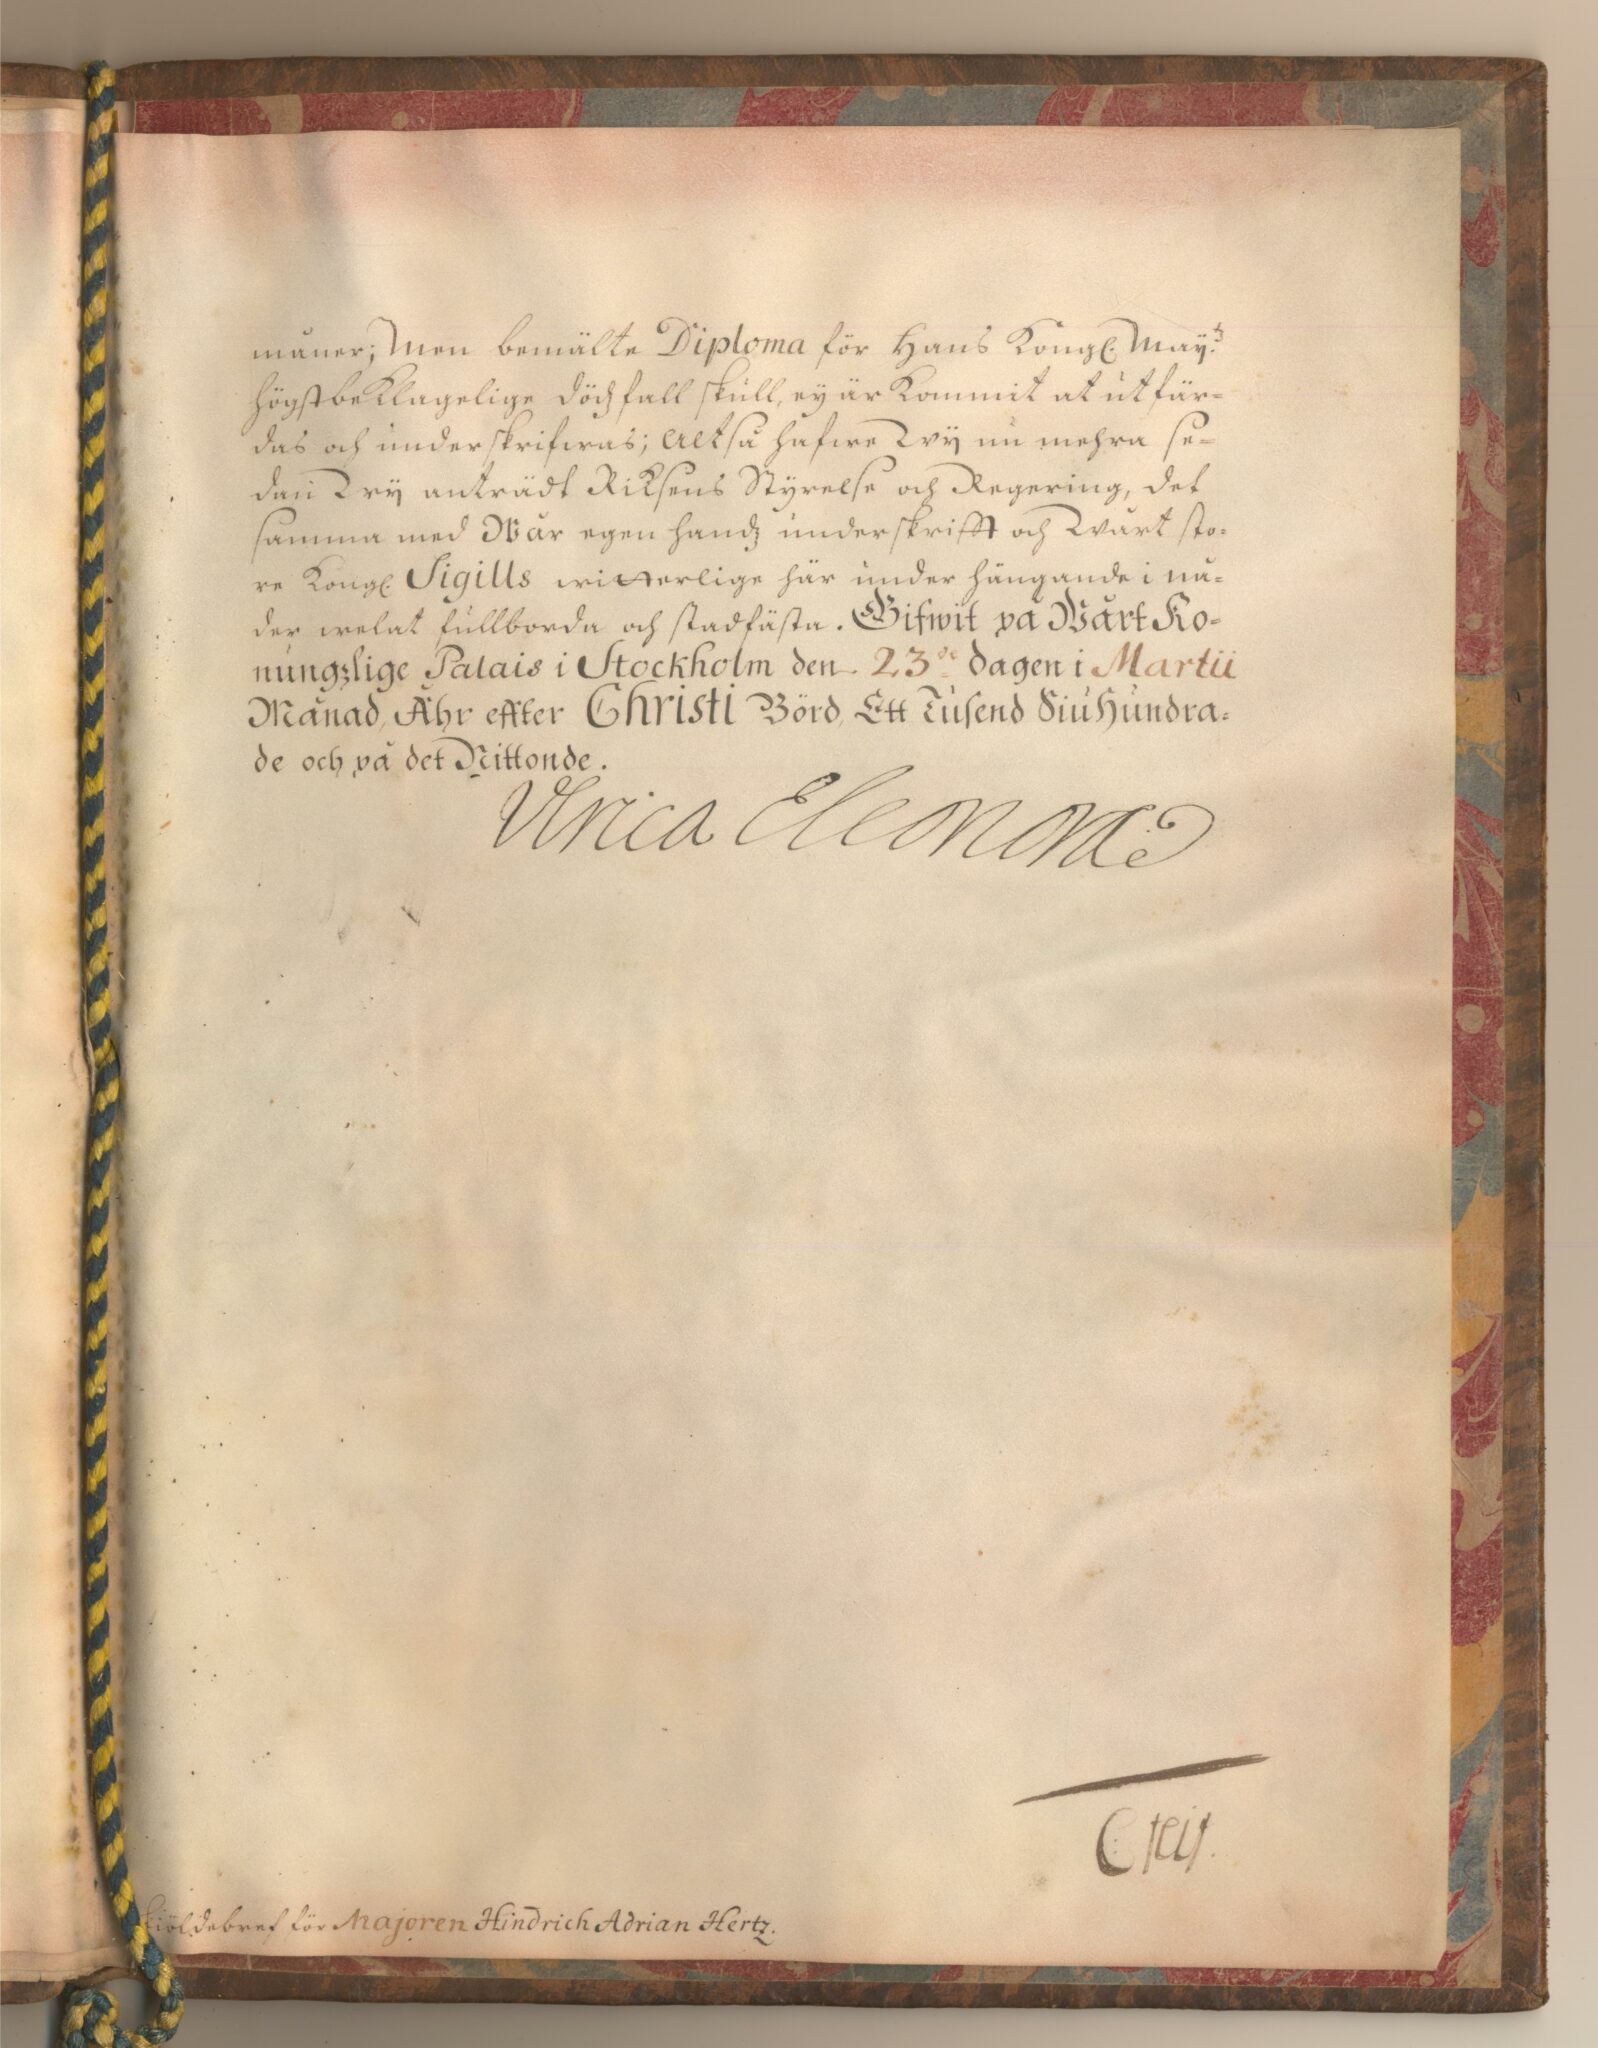 måner; Men bemälte Diploma för Hans Kongl. May:tz
högstbeklagelige dödzfall skull, ey är kommit at utfär-
das och underskrifwas; Altså hafwe Wy nu mehra se-
dan Wy anträdt Riksens Styrelse och Regering, det
samma med Wår egen handz underskrifft och Wårt sto-
re Kongl. Sigills witterlige här under hängande i nå-
der welat fullborda och stadfästa. Gifwit på Wårt Ko-
nungzlige Palais i Stockholm den 23de dagen i Martii
Månad, Åhr effter Christi Börd, Ett Tusend Siu Hundra-
de och på det Nittonde.
Ulrica Eleonora
Skiöldebref för Majoren Hindrich Adrian Hertz.